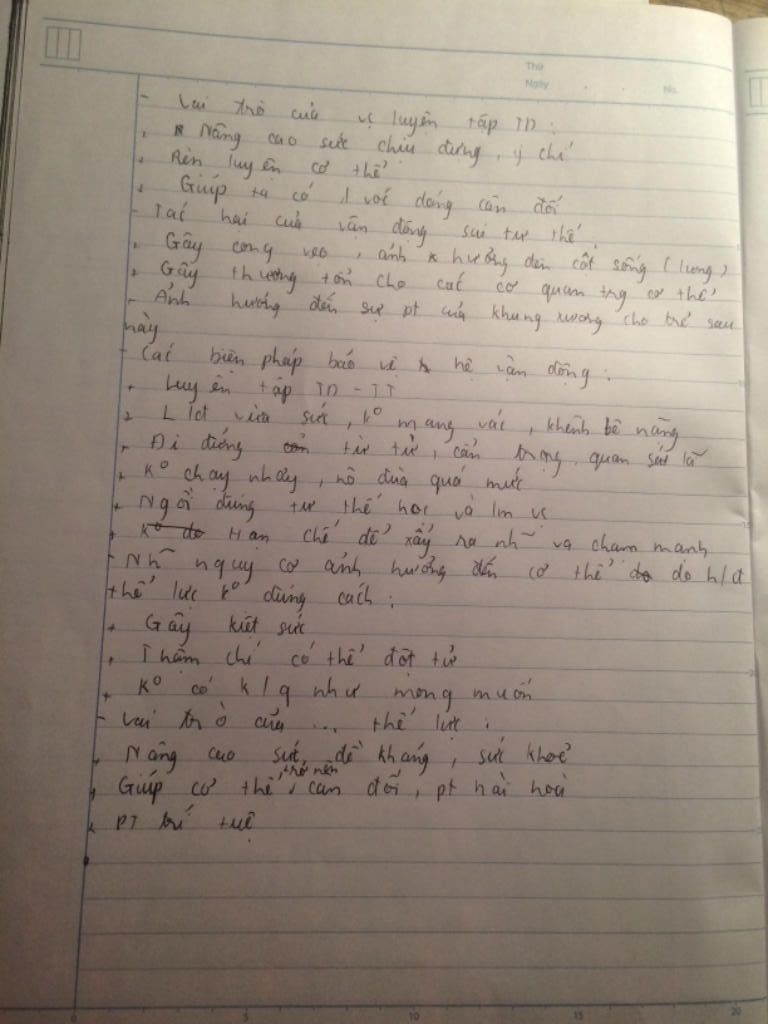 Thứ
Ngày
No.
- Vai trò của vs luyện tập TD :
+ Nâng cao sức chịu đựng, ý chí
+ Rèn luyện cơ thể
+ Giúp ta có 1 vóc dáng cân đối
- Tác hại của vận động sai tư thế.
+ Gây cong vẹo, ảnh hưởng đến cột sống (lưng)
+ Gây thương tổn cho các cơ quan trg cơ thể
+ Ảnh hưởng đến sự pt của khung xương cho trẻ sau
này
- Các biện pháp bảo vệ hệ vận động :
+ Luyện tập TD - TT
+ L/đ vừa sức, k° mang vác, khênh bê nặng
+ Đi đứng từ từ, cẩn trọng, quan sát
+ K° chạy nhảy, nô đùa quá mức
+ Ngồi đúng tư thế học và lm vs
+ Hạn chế để xẩy ra nh~ va chạm mạnh
- Nh~ nguy cơ ảnh hưởng đến cơ thể do h/đ
thể lực k° đúng cách :
+ Gây kiệt sức
+ Thậm chí có thể đột tử
+ K° có k/q như mong muốn
- Vai trò của ... thể lực :
+ Nâng cao sức đề kháng, sức khoẻ
+ Giúp cơ thể trở nên cân đối, pt hài hoà
+ PT trí tuệ
0 5 10 15 20